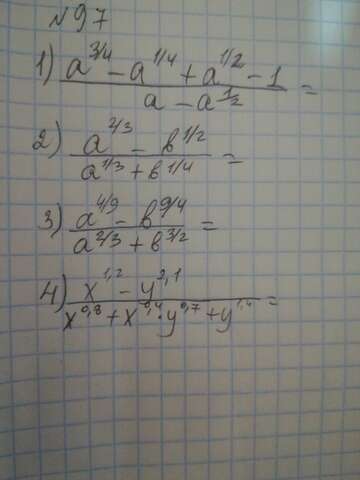 №97
1) a^{3/4} - a^{1/4} + a^{1/2} - 1 / a - a^{1/2} =
2) a^{2/3} - b^{1/2} / a^{1/3} + b^{1/4} =
3) a^{4/9} - b^{9/4} / a^{2/3} + b^{3/2} =
4) x^{1,2} - y^{2,1} / x^{0,8} + x^{0,4} · y^{0,7} + y^{1,4} =